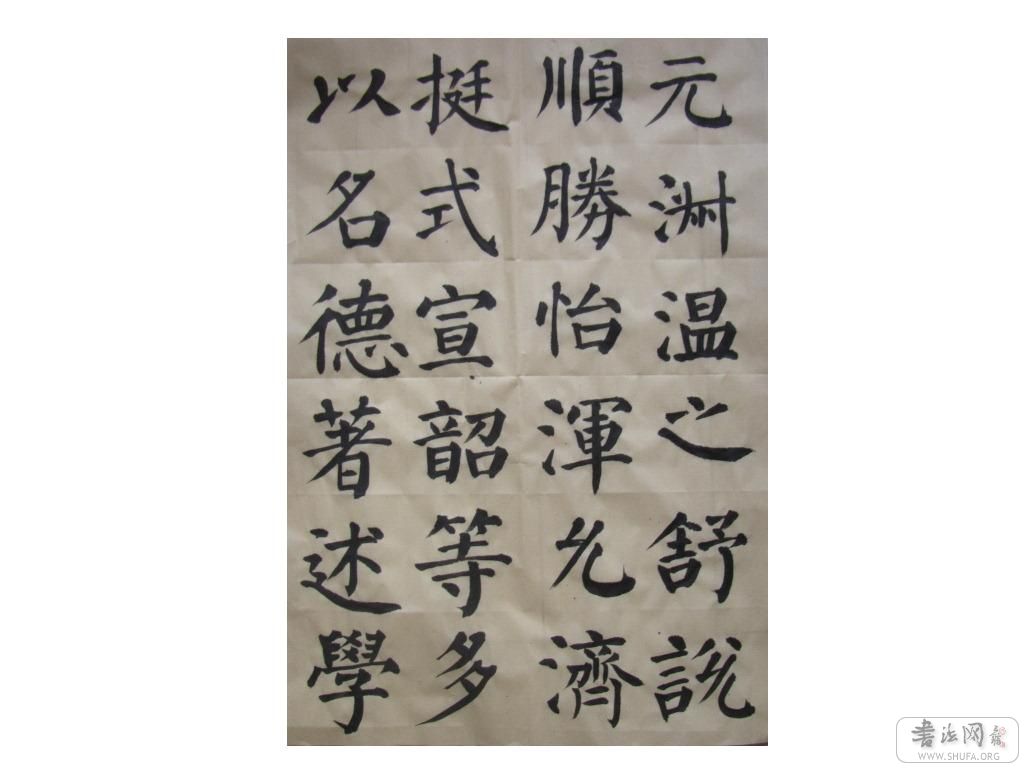 元淋温之舒說
順勝怡渾允濟
挺式宣韶等多
以名德著述學
書法网
WWW.SHUFA.ORG